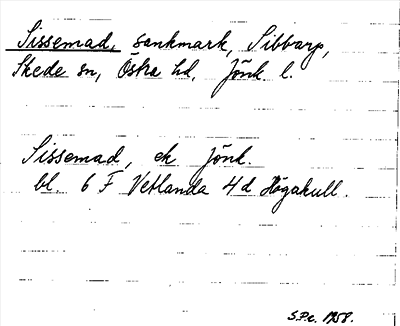 Sissemad, sankmark, Sibbarp,
Skede sn, Östra hd, Jönk l.
Sissemad, ek Jönk.
bl. 6 F Vetlanda 4d Högakull.
S.P.e. 1958.